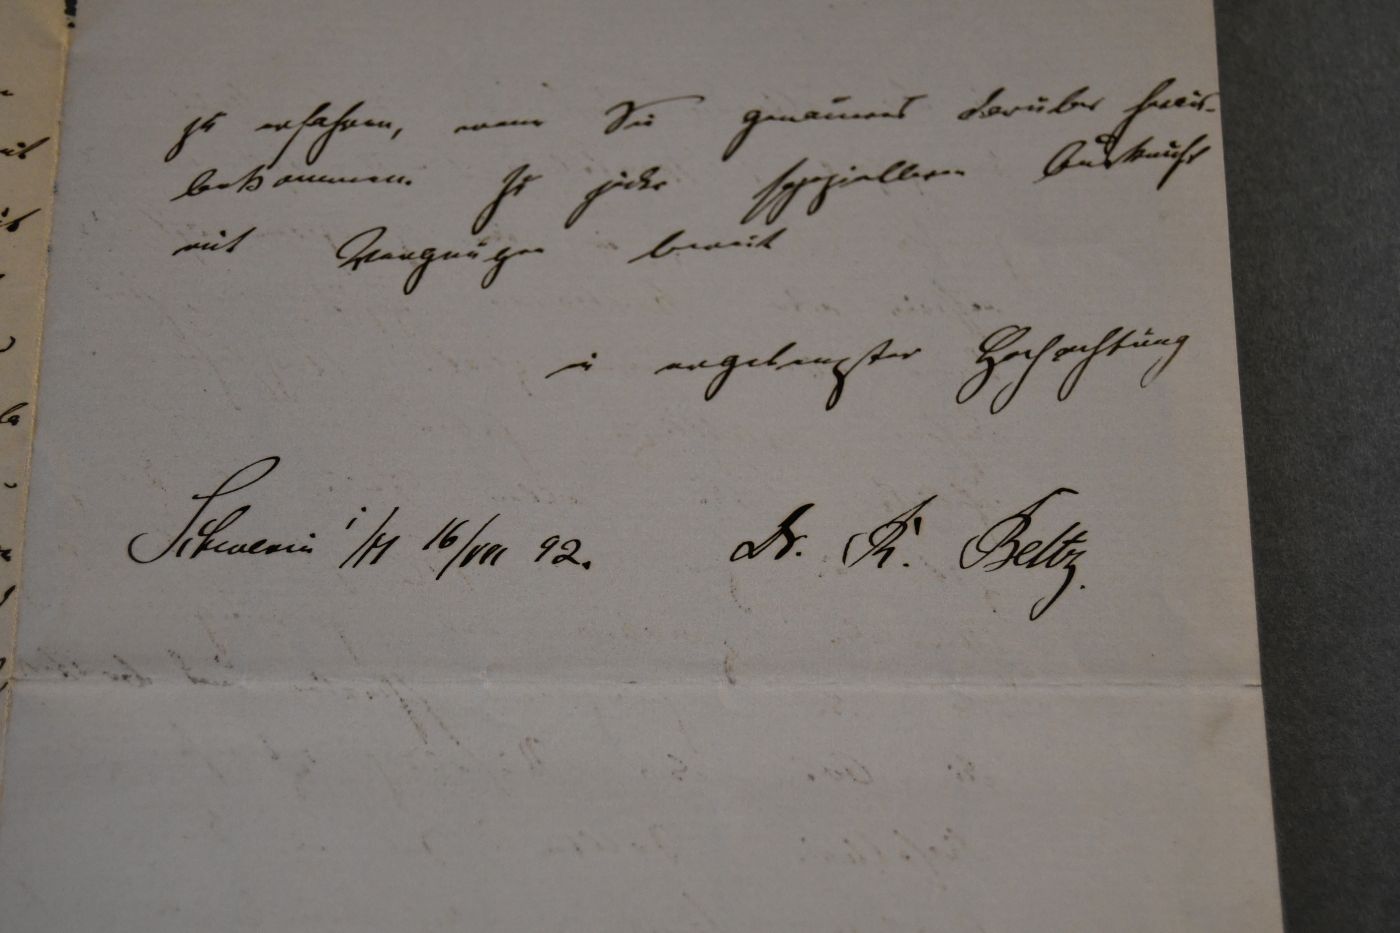 zu erfahren, wenn Sie genaueres darüber heraus-
bekommen. Zu jeder spezielleren Auskunft
mit Vergnügen bereit
in ergebenster Hochachtung
Schwerin i/M 16/VIII 92. Dr. R. Beltz.